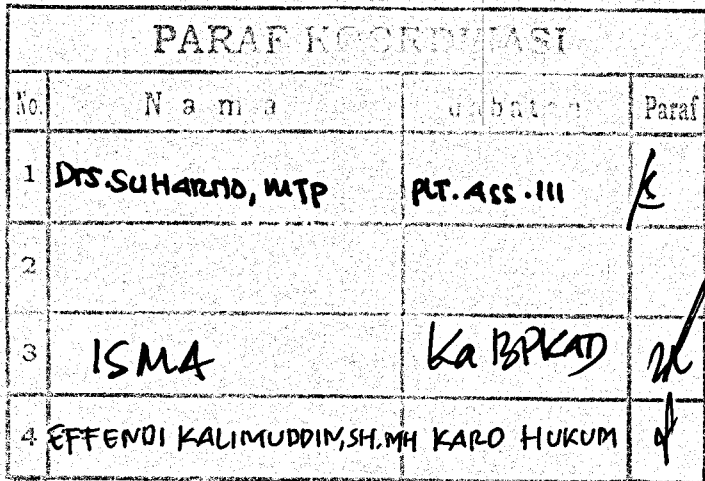 PARAF KOORDINASI
No. Nama Jabatan Paraf
1 Drs. SUHARNO, MTP PLT. ASS. III
2
3 ISMA Ka BPKAD
4 EFFENDI KALIMUDDIN, SH. MH KARO HUKUM